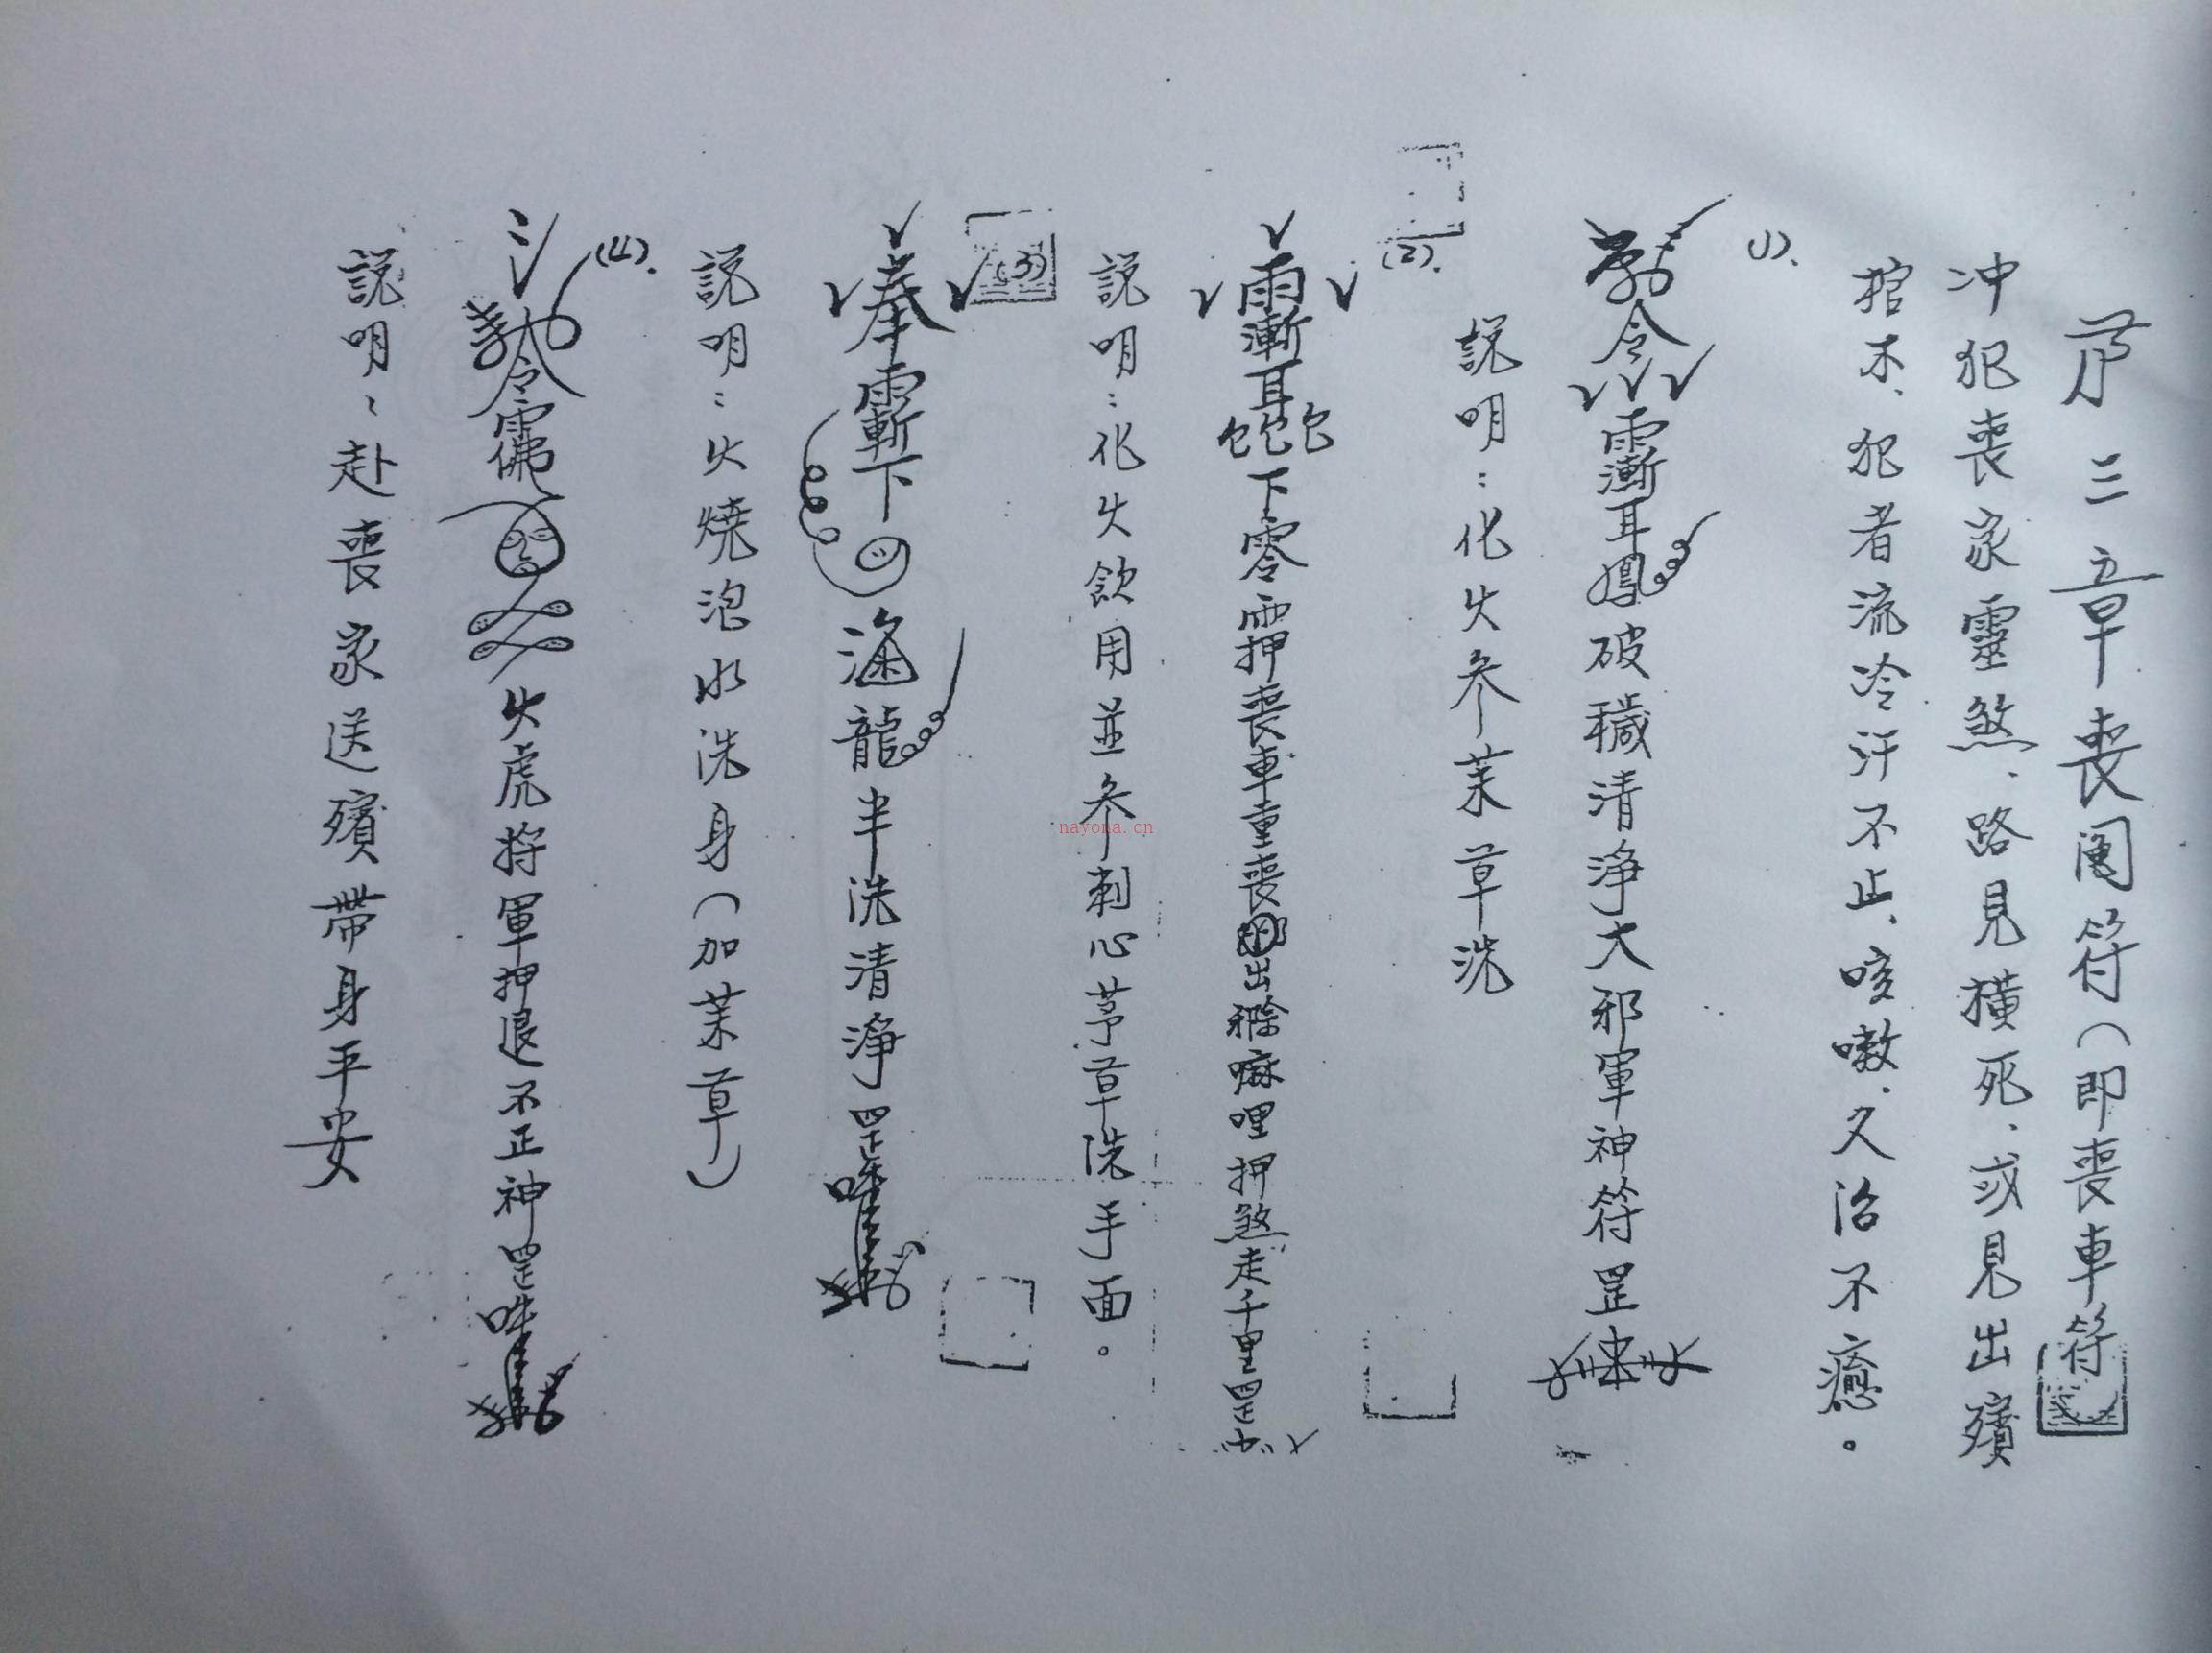 第三章喪闍符（即喪車符）
冲犯喪家靈煞、路見横死、或見出殯
棺木、犯者流冷汗不止、咳嗽、久治不癒。
(1)、
勅令 耳 破穢清淨大邪軍神符罡
説明：化火参茉草洗
(2).
雨漸耳 下零 押喪車重喪 出 嘛哩押煞走千里罡
説明：化火飲用並参刺心茅草洗手面。
(3)
奉 下 龍半洗清淨罡
説明：火燒泡水洗身（加茉草）
(4).
勅令 火虎将軍押退不正神罡
説明：赴喪家送殯帶身平安
nayona.cn